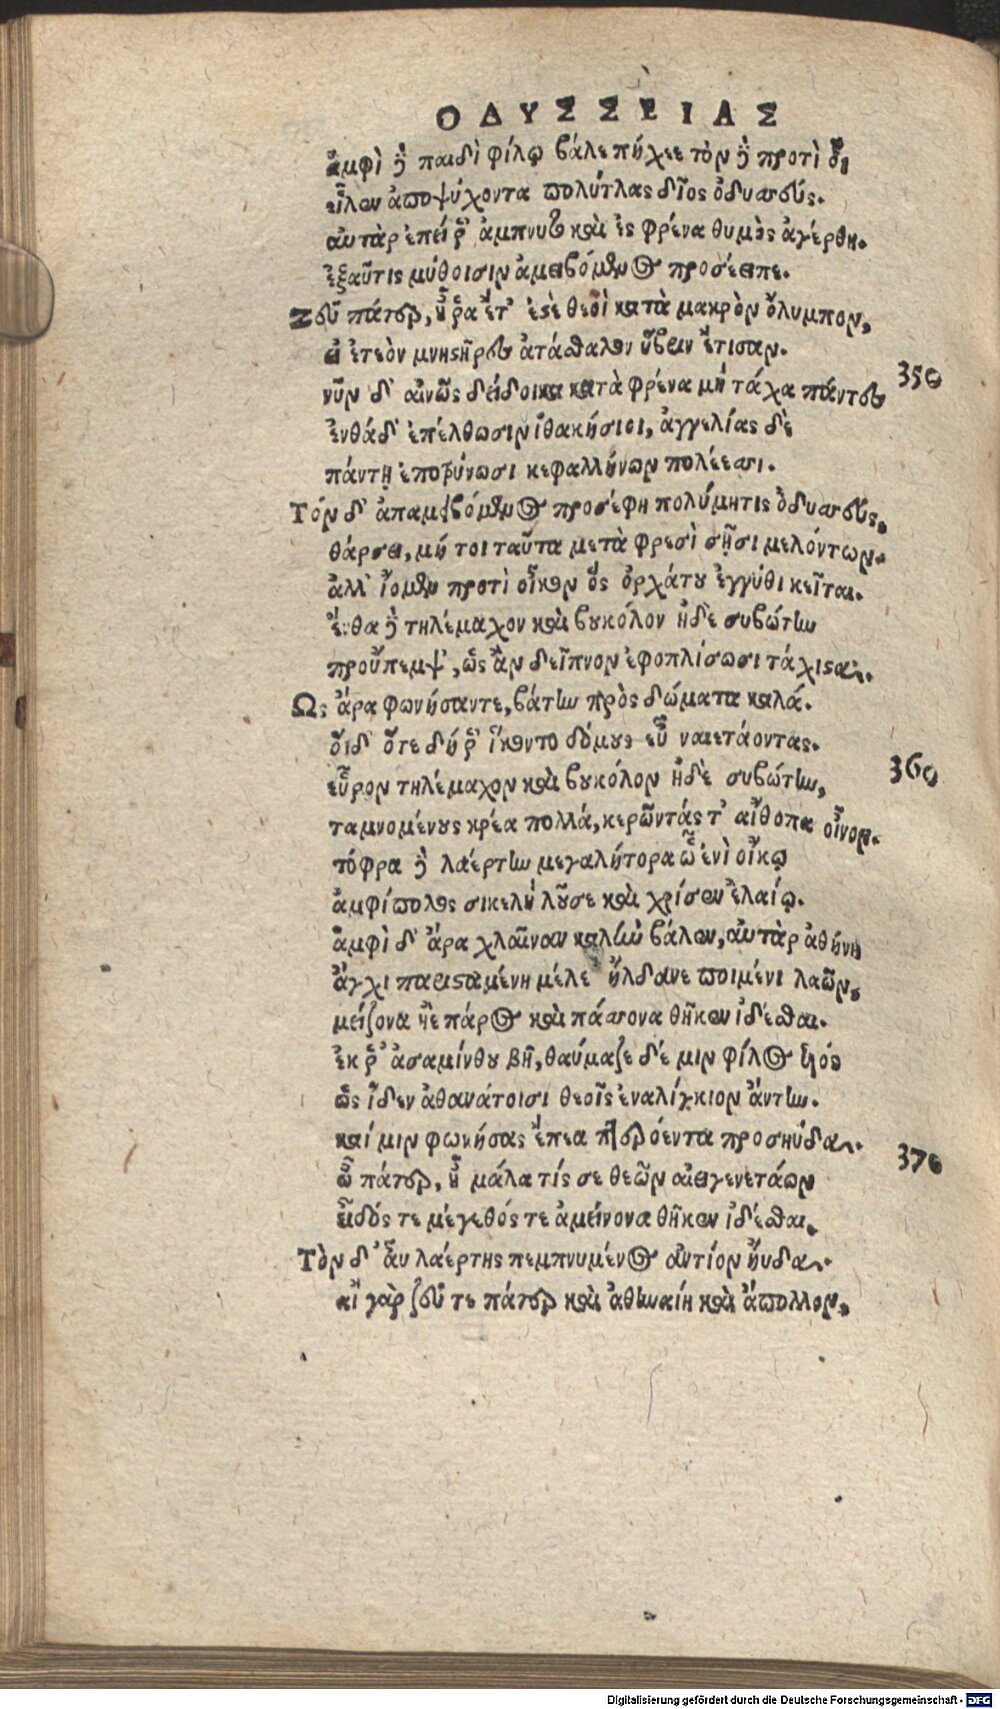 ΟΔΥΣΣΕΙΑΣ
ἀμφὶ δὲ παιδὶ φίλῳ βάλε πήχεε τὸν δὲ προτὶ οἷ
εἷλεν ἀποψύχοντα πολύτλας δῖος ὀδυσσεύς.
αὐτὰρ ἐπεί ῥ' ἄμπνυτο καὶ ἐς φρένα θυμὸς ἀγέρθη.
ἐξαῦτις μύθοισιν ἀμειβόμενος προσέειπε.
Ζεῦ πάτερ, ἦ ῥα ἔτ' ἐστὲ θεοὶ κατὰ μακρὸν ὄλυμπον,
εἰ ἐτεὸν μνηστῆρες ἀτάσθαλον ὕβριν ἔτισαν.
νῦν δ' αἰνῶς δείδοικα κατὰ φρένα μὴ τάχα πάντες 350
ἐνθάδ' ἐπέλθωσιν ἰθακήσιοι, ἀγγελίας δὲ
πάντῃ ἐποτρύνωσι κεφαλλήνων πολίεσσι.
Τόν δ' ἀπαμειβόμενος προσέφη πολύμητις ὀδυσσεύς,
θάρσει, μή τοι ταῦτα μετὰ φρεσὶ σῇσι μελόντων.
ἀλλ' ἴομεν προτὶ οἶκον ὃς ὀρχάτου ἐγγύθι κεῖται.
ἔνθα δὲ τηλέμαχον καὶ βουκόλον ἠδὲ συβώτην
προὔπεμψ', ὡς ἂν δεῖπνον ἐφοπλίσωσι τάχιστα.
Ως ἄρα φωνήσαντε, βάτην πρὸς δώματα καλά.
οἵδ' ὅτε δή ῥ' ἵκοντο δόμους εὖ ναιετάοντας.
εὗρον τηλέμαχον καὶ βουκόλον ἠδὲ συβώτην, 360
ταμνομένους κρέα πολλά, κερῶντάς τ' αἴθοπα οἶνον.
τόφρα δὲ λαέρτην μεγαλήτορα ᾧ ἐνὶ οἴκῳ
ἀμφίπολος σικελὴ λοῦσε καὶ χρίσεν ἐλαίῳ.
ἀμφὶ δ' ἄρα χλαῖναν καλὴν βάλεν, αὐτὰρ ἀθήνη
ἄγχι παρισταμένη μέλε' ἤλδανε ποιμένι λαῶν,
μείζονα ἠὲ πάρος καὶ πάσσονα θῆκεν ἰδέσθαι.
ἐκ ῥ' ἀσαμίνθου βῆ, θαύμαζε δέ μιν φίλος υἱός
ὡς ἴδεν ἀθανάτοισι θεοῖς ἐναλίγκιον ἄντην.
καί μιν φωνήσας ἔπεα πτερόεντα προσηύδα. 370
ὦ πάτερ, ἦ μάλα τίς σε θεῶν αἰειγενετάων
εἶδός τε μέγεθός τε ἀμείνονα θῆκεν ἰδέσθαι.
Τὸν δ' ἂυ λαέρτης πεπνυμένος ἀντίον ἤυδα.
αἲ γὰρ ζεῦ τε πάτερ καὶ ἀθηναίη καὶ ἄπολλον,
Digitalisierung gefördert durch die Deutsche Forschungsgemeinschaft - DFG